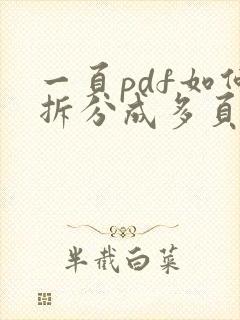 一頁pdf如何
拆分成多頁
半截白菜